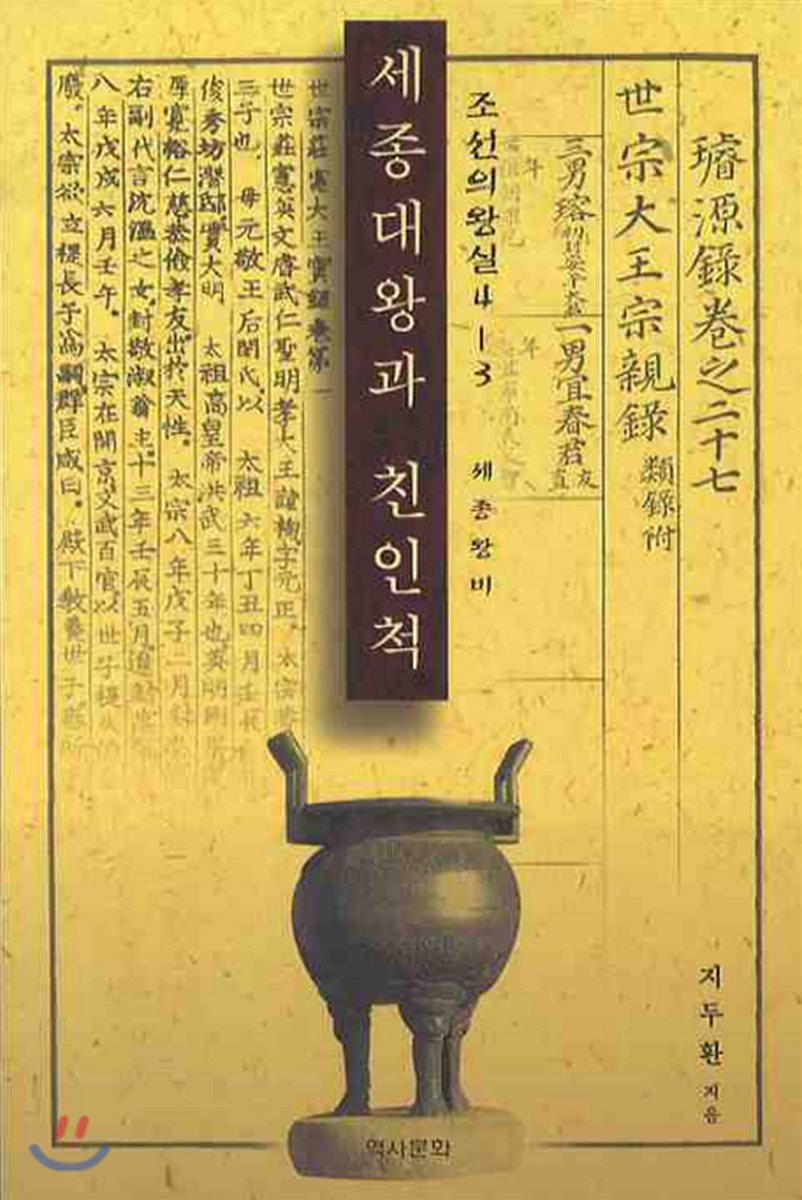 세종대왕과 친인척
조선의 왕실 4-3
세종왕비
璿源錄卷之二十七
世宗大王宗親錄 類錄附
三男瑢
一男宜春君 友直
世宗莊憲大王實錄卷第一
世宗莊憲英文睿武仁聖明孝大王諱祹字元正。太宗
三子也。母元敬王后閔氏。以 太祖六年丁丑四月壬辰
俊秀坊潛邸實大明 太祖高皇帝洪武三十年也。英明剛果
厚寬裕仁慈恭儉孝友出於天性。太宗八年戊子二月
右副代言沈溫之女封敬淑翁主。十三年壬辰五月
八年戊戌六月壬午。太宗在開京文武百官以世子禔
廢。太宗欲立禔長子為嗣群臣咸曰。殿下敎養世子
지두환 지음
역사문화